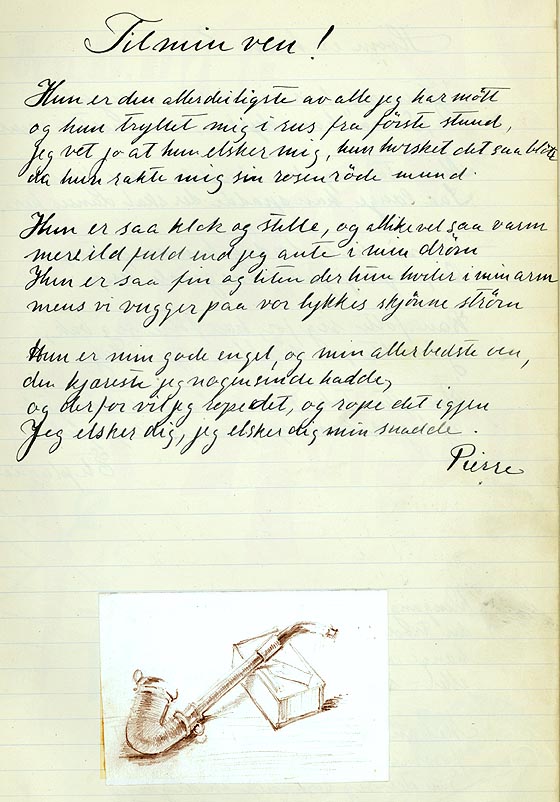 Til min ven!
Hun er den allerdeiligste av alle jeg har mött
og hun tryllet mig i sus fra förste stund,
jeg vet jo at hun elsker mig, hun hvisket det saa blött
da hun rakte mig sin rosenröde mund.
Hun er saa klok og stille, og allikevel saa varm
mere ild fuld end jeg ante i min dröm
Hun er saa fin og liten der hun hviler i min arm
mens vi vugger paa vor lykkes skjönne ström
Hun er min gode engel, og min allerbedste ven,
den kjæreste jeg nogensinde hadde,
og derfor vil jeg rope det, og rope det igjen
Jeg elsker dig, jeg elsker dig min snadde.
Pierre